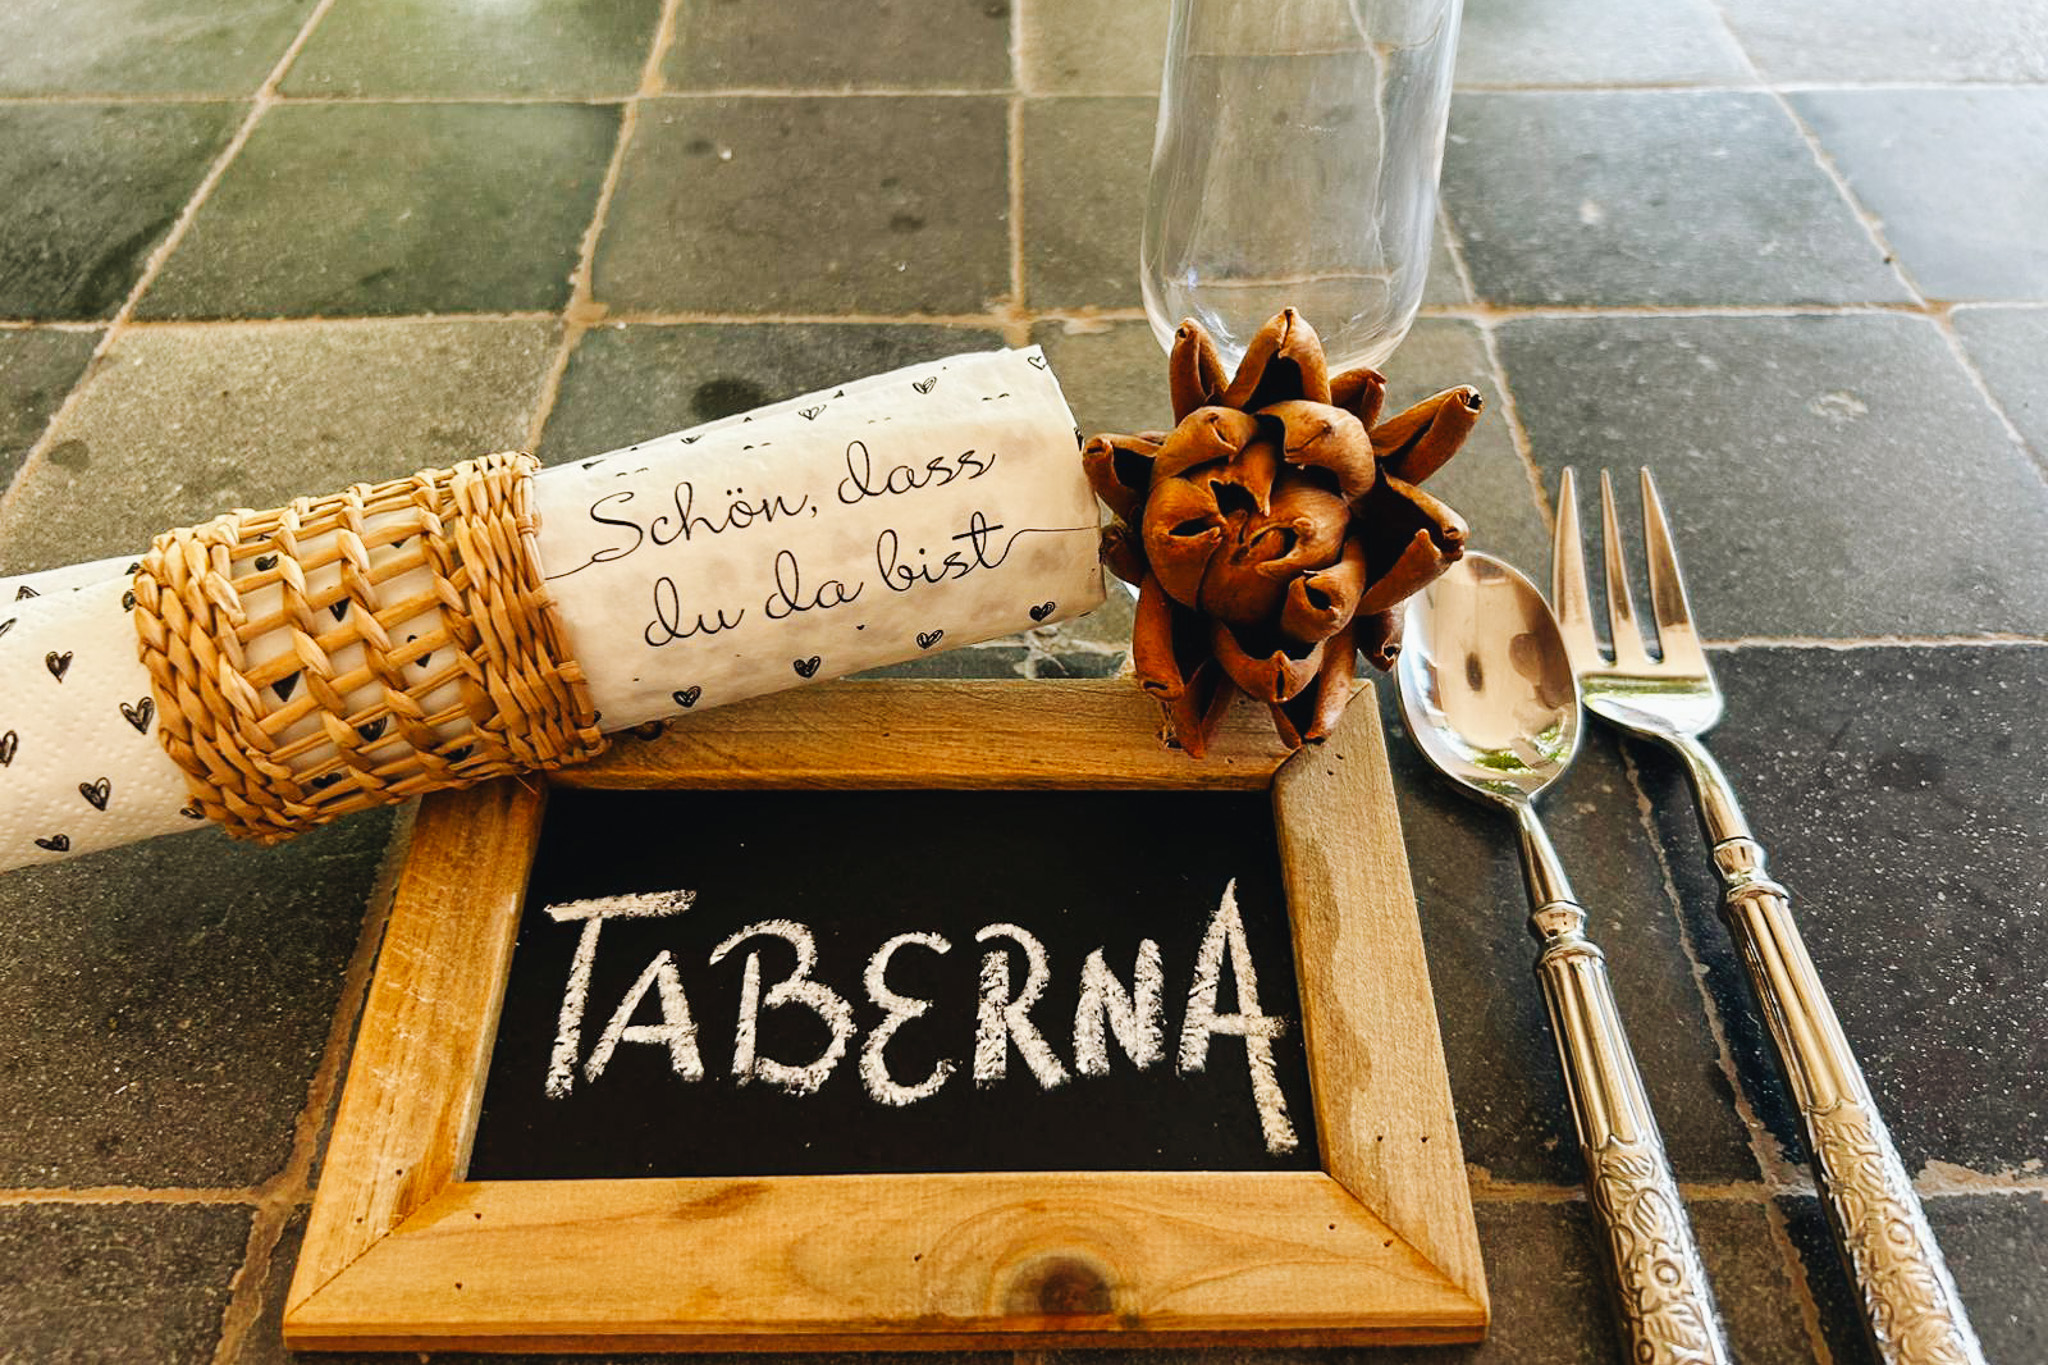 Schön, dass
du da bist
TABERNA